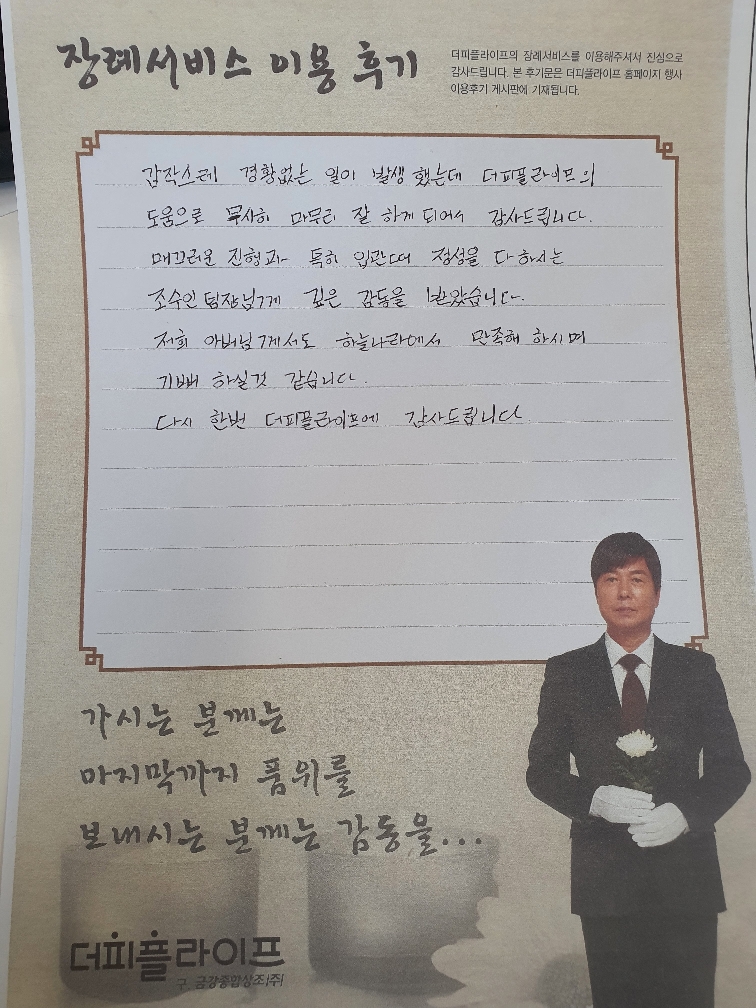 장례서비스 이용 후기
더피플라이프의 장례서비스를 이용해주셔서 진심으로
감사드립니다. 본 후기문은 더피플라이프 홈페이지 행사
이용후기 게시판에 기재됩니다.
갑작스레 경황없는 일이 발생 했는데 더피플라이프의
도움으로 무사히 마무리 잘 하게 되어서 감사드립니다.
매끄러운 진행과 특히 입관때 정성을 다 하시는
조수인팀장님께 깊은 감동을 받았습니다.
저희 아버님께서도 하늘나라에서 만족해 하시며
기뻐 하실것 같습니다.
다시 한번 더피플라이프에 감사드립니다
가시는 분께는
마지막까지 품위를
보내시는 분께는 감동을...
더피플라이프
구. 금강종합상조(주)